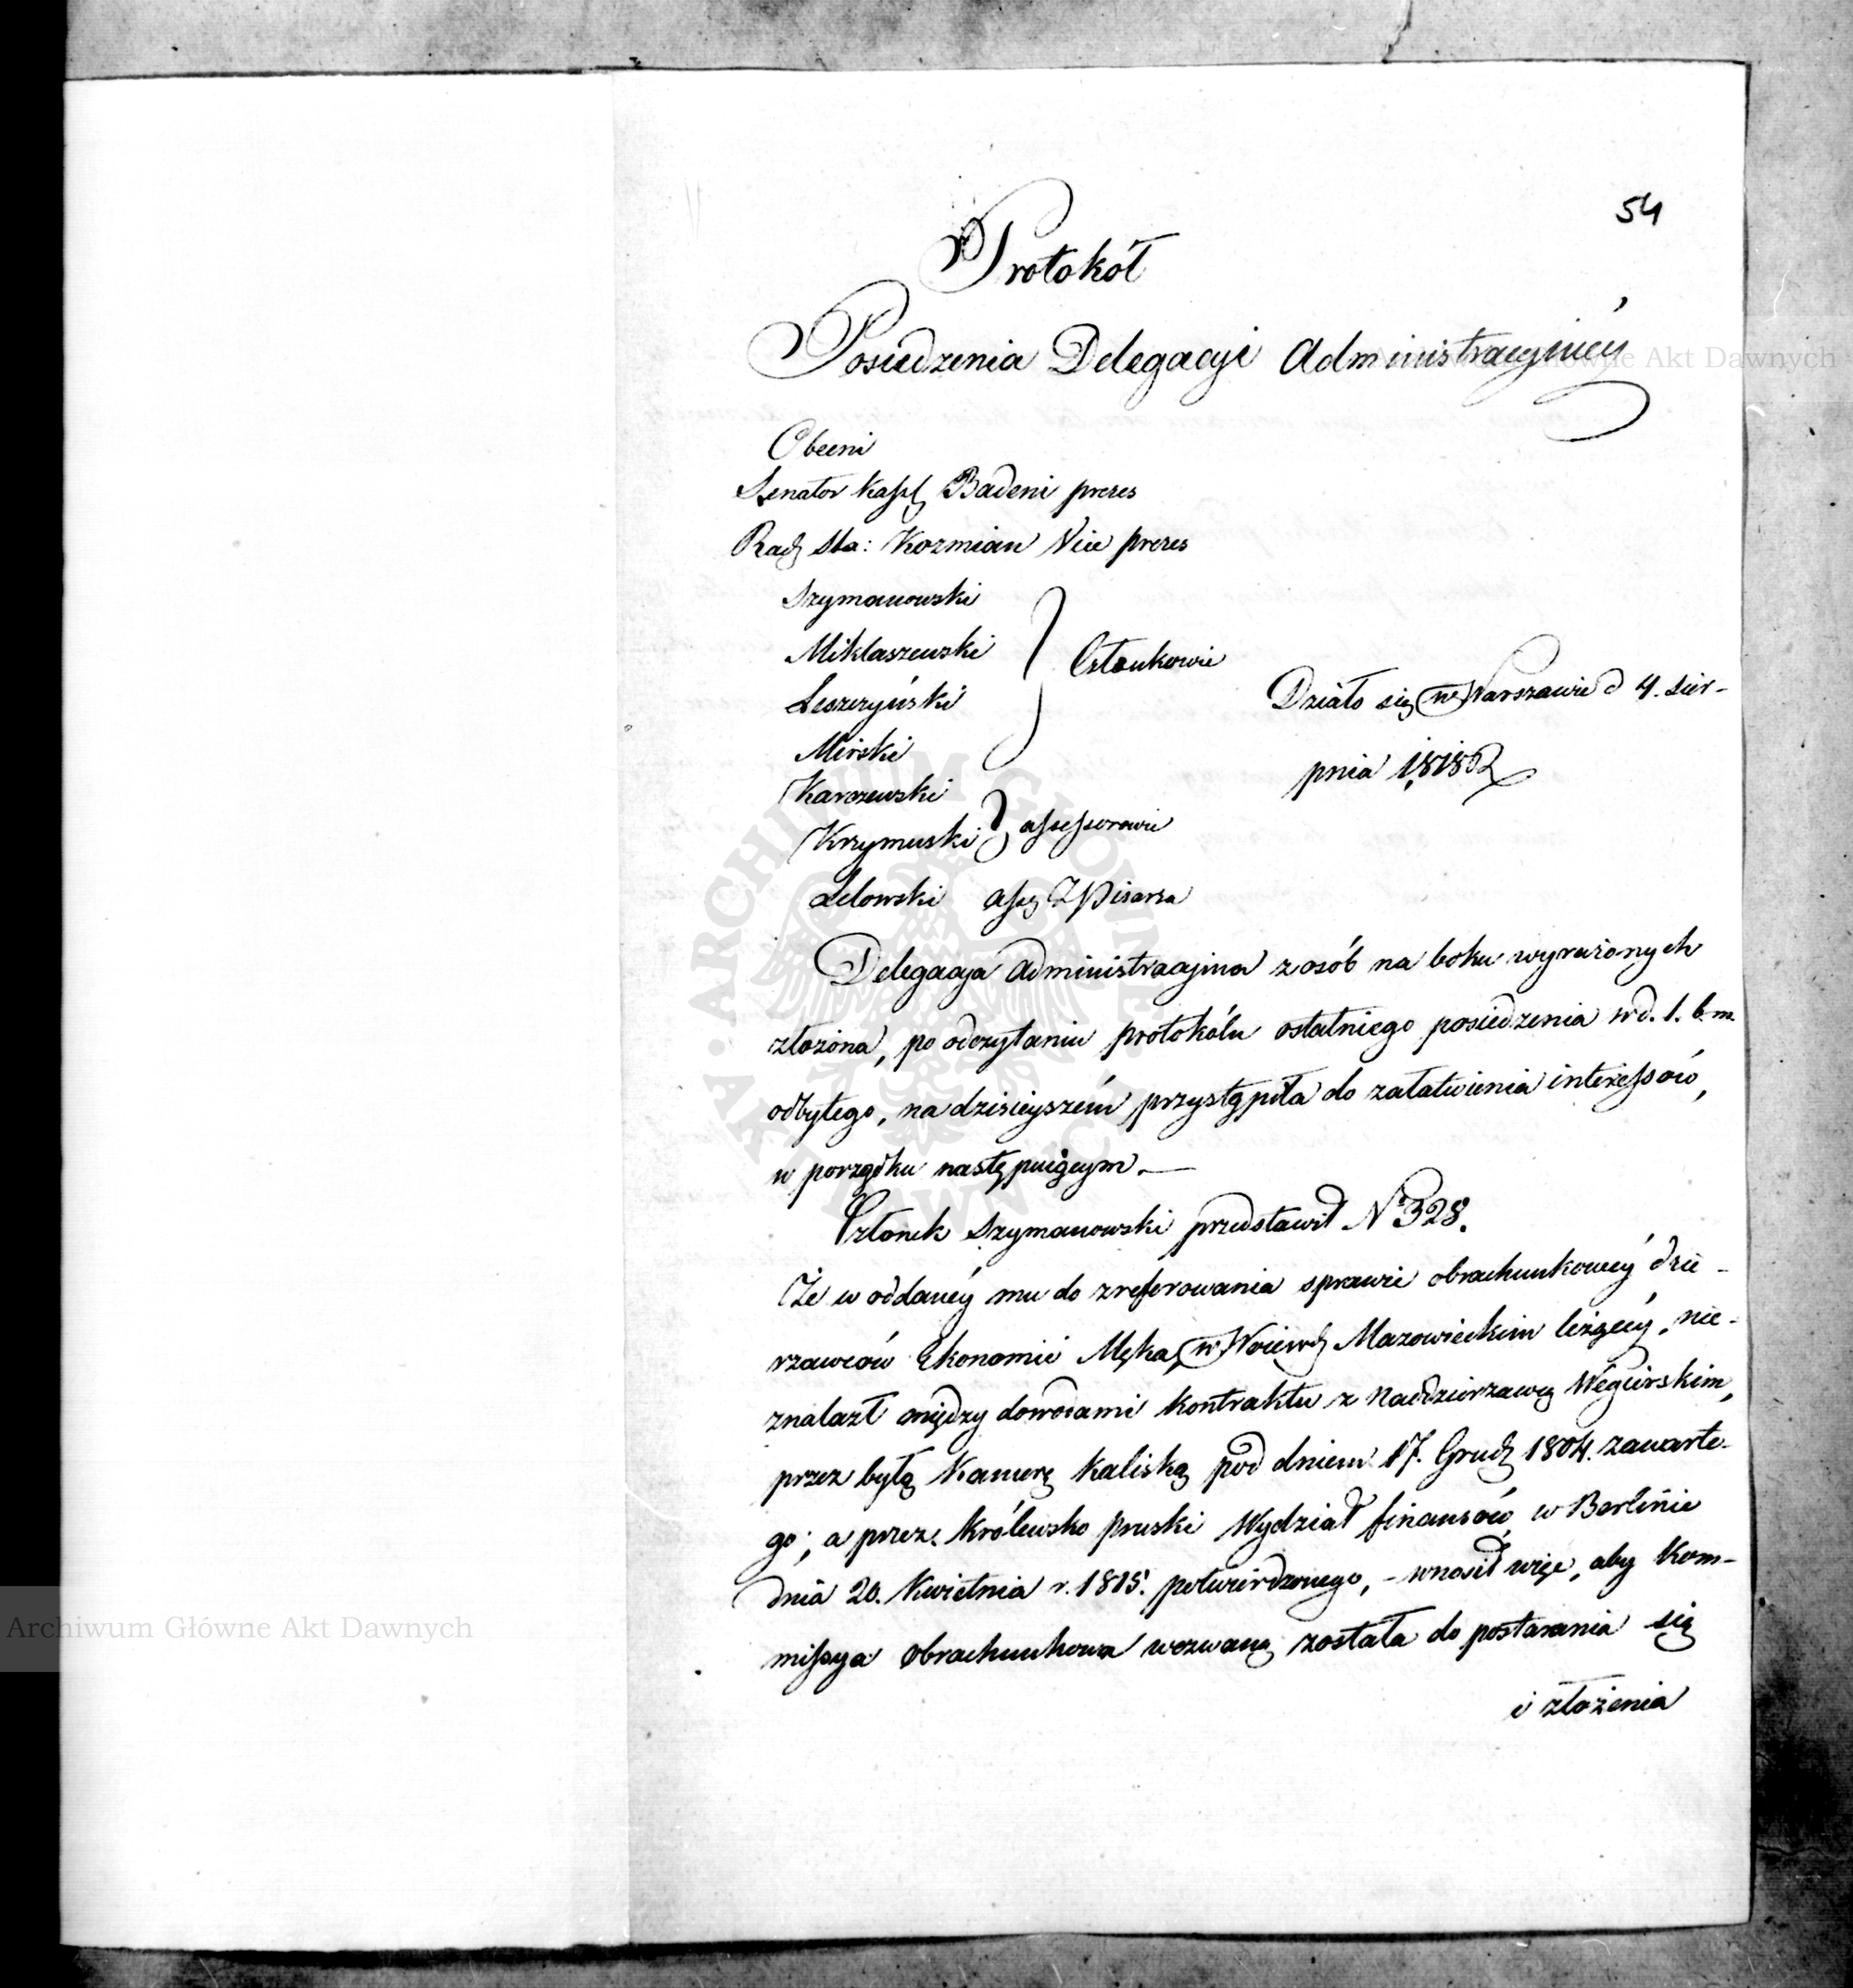 54
Protokół
Posiedzenia Delegacyi Administracyinéy
Obecni
Senator Kasztl Badeni prezes
Radz Sta: Kozmian Vice prezes
Szymanowski
Miklaszewski
Leszczyński
Mirski
Członkowie
Karczewski
Krzymuski
assessorowie
Lelowski ass Z Pisarza
Działo się w Warszawie d 4. Sier-
pnia 1818 R
Delegacya Administracyina z osób na boku wyrażonych
złożona, po odczytaniu protokółu ostatniego posiedzenia w d. 1. b. m.
odbytego, na dzisieyszém przystąpiła do załatwienia interessów,
w porządku następuiącym. —
Członek Szymanowski przedstawił N 328.
Że w oddanéy mu do zreferowania sprawie obrachunkowéy dzie-
rzawców Ekonomii Męka, w Woiewdz Mazowieckim leżącéy, nie-
znalazł między dowodami kontraktu z Naddzierzawcą Węgierskim,
przez byłą Kamerę Kaliską pod dniem 17. Grudz 1804. zawarte-
go; a przez Królewsko pruski Wydział finansów w Berlinie
dnia 20. Kwietnia r. 1805. potwierdzonego, – wnosił więc, aby Kom-
missya Obrachunkowa wezwaną została do postarania się
i złożenia
Archiwum Główne Akt Dawnych
Archiwum Główne Akt Dawnych
ARCHIWUM GŁÓWNE AKT DAWNYCH